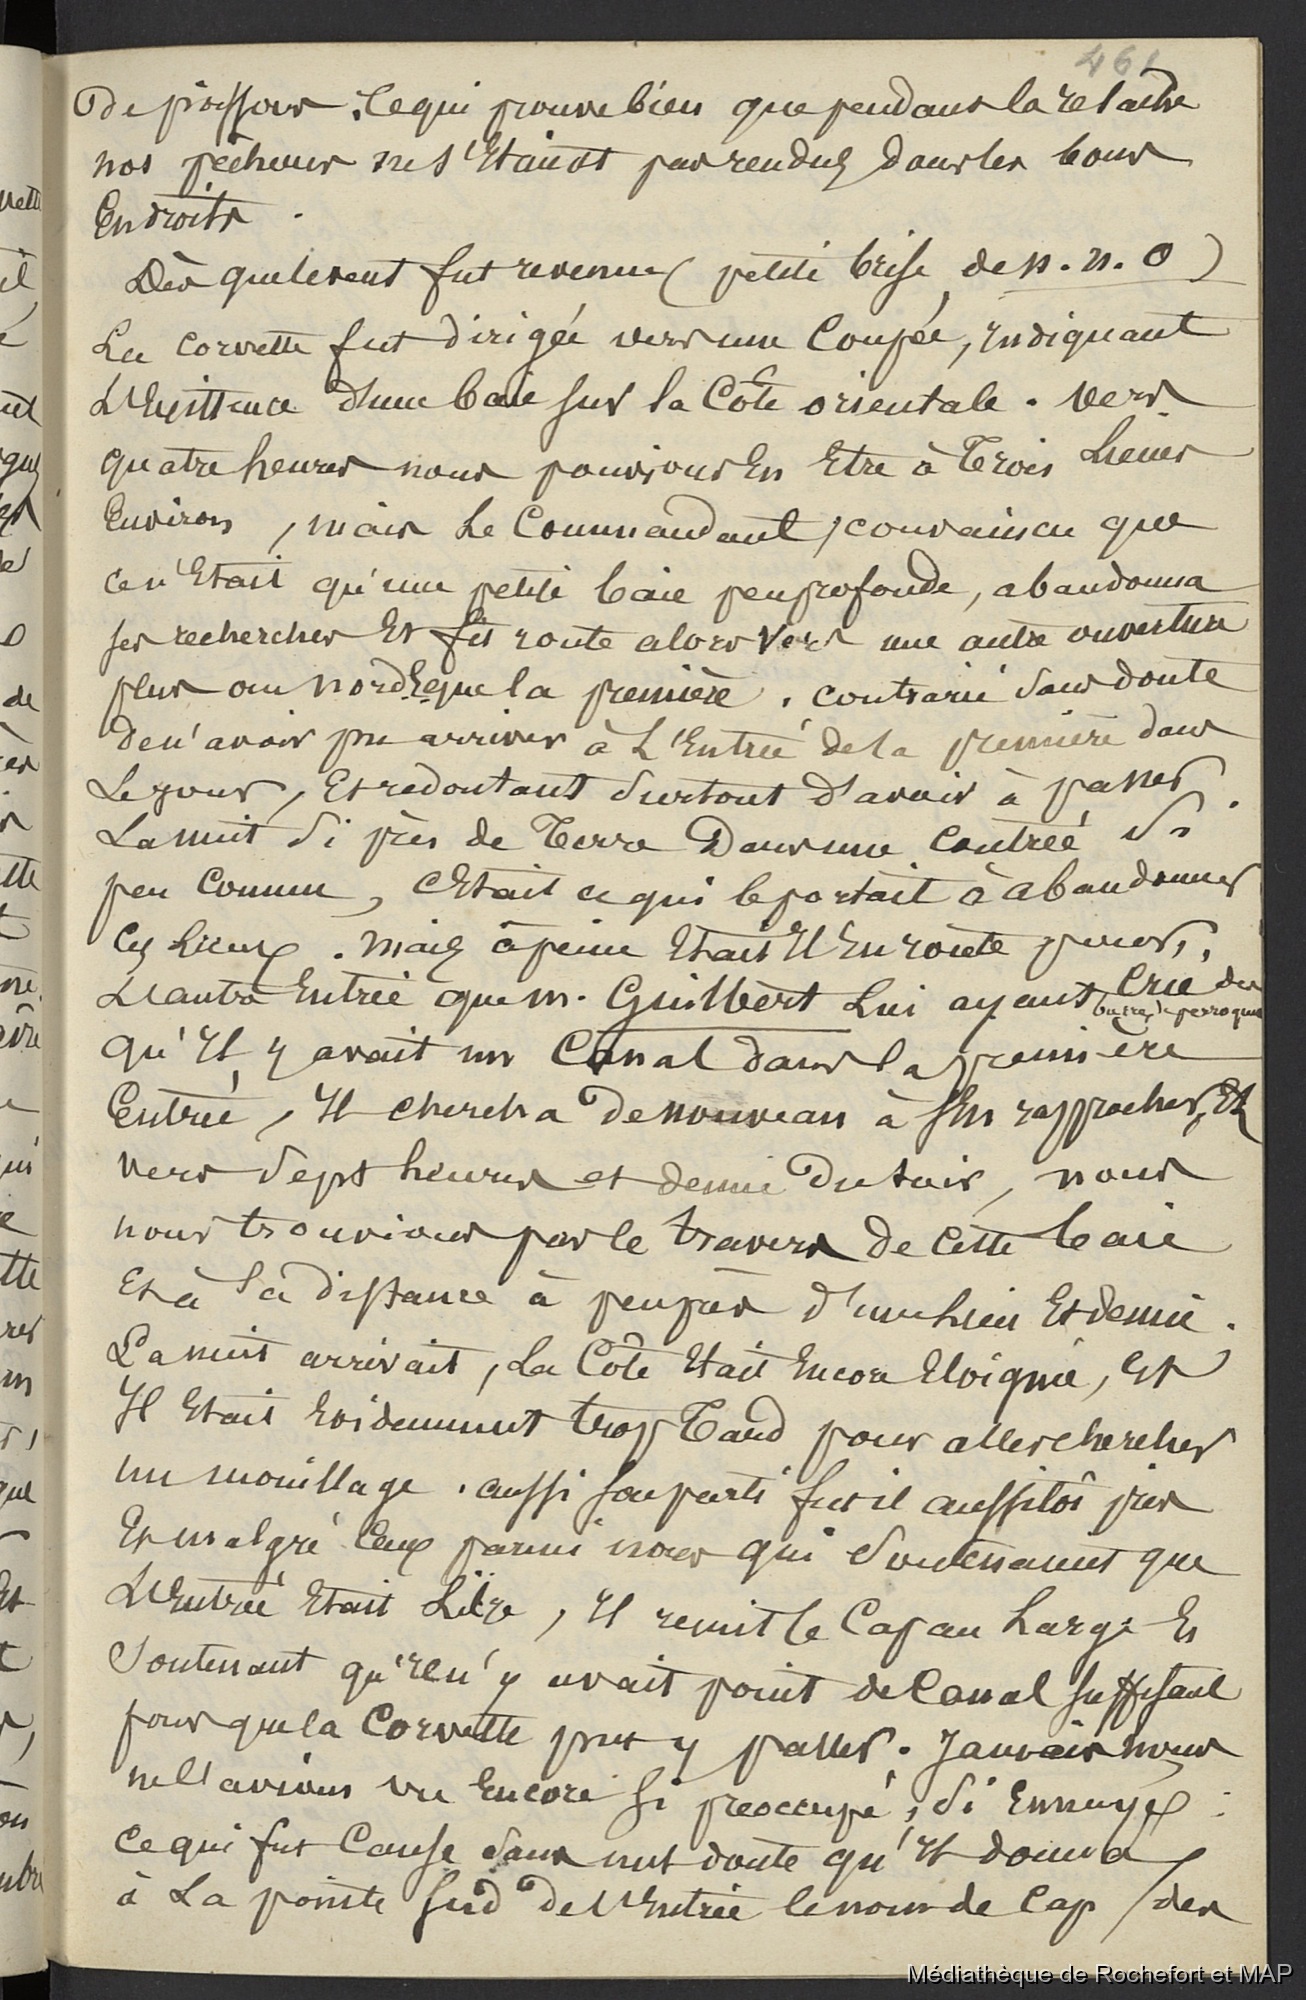 461
de poissons. Ce qui prouve bien que pendant la relache
nos pêcheurs ne s'Etaient pas rendus dans les bons
Endroits.
Dès que le vent fut revenu (petite brise de n. n. O)
La corvette fut dirigée vers une Coupée, indiquant
L'Existence d'une baie sur la Côte orientale. Vers
quatre heures nous pouvions En Etre à Trois Lieues
Environ, mais Le Commandant, convaincu que
ce n'Etait qu'une petite baie peu profonde, abandonna
ses recherches Et fit route alors Vers une autre ouverture
plus au nord E que la première. Contrarié sans doute
de n'avoir pu arriver à L'Entrée de la première dans
Le jour, Et redoutant surtout d'avoir à passer
La nuit si près de Terre Dans une Contrée si
peu Connue, c'Etait ce qui le portait à abandonner
ces Lieux. Mais à peine Etait Il En route pour
L'autre Entrée que M. Guilbert Lui ayant Crié des
barres de perroquet
qu'Il y avait un Canal dans la première
Entrée, Il chercha De nouveau à s'En rapprocher, Et
vers sept heures et demie Du soir, nous
nous trouvions par le travers de Cette baie
Et à la distance à peu près d'une lieue Et demie.
La nuit arrivait, La Côte Etait Encore Eloignée, Et
Il Etait Evidemment trop Tard pour aller chercher
un mouillage. aussi son parti fut il aussitôt pris
Et malgré Ceux parmi nous qui soutenaient que
L'Entrée Etait Libre, Il remit le Cap au Large En
Soutenant qu'Il n'y avait point de Canal suffisant
pour que la Corvette put y passer. Jamais nous
ne l'avions vu Encore si préoccupé, si Ennuyé :
Ce qui fut Cause sans nul doute qu'Il donna
à La pointe Sud De l'Entrée le nom de Cap / des
Médiathèque de Rochefort et MAP